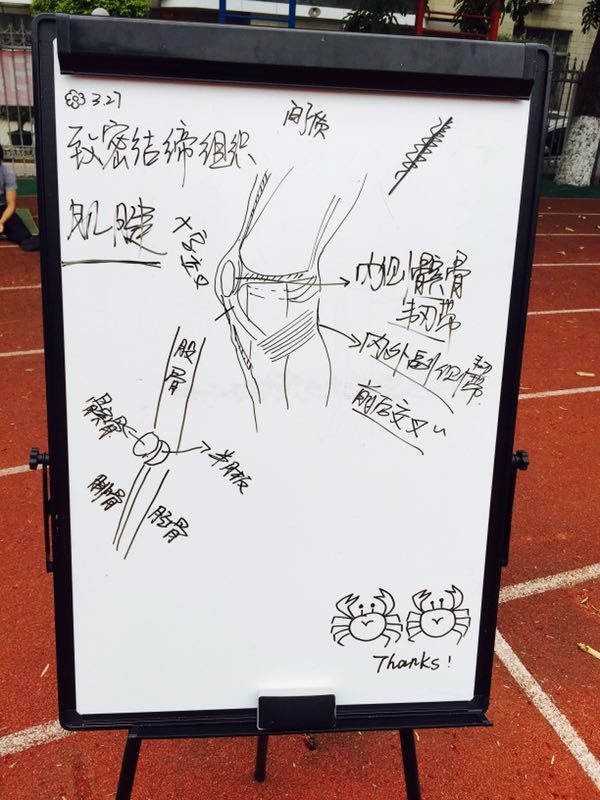 3.27
间质
致密结缔组织
肌腱
内侧髌骨
韧带
内外副侧韧带
前后交叉〃
股骨
髌骨
半月板
腓骨
胫骨
Thanks!